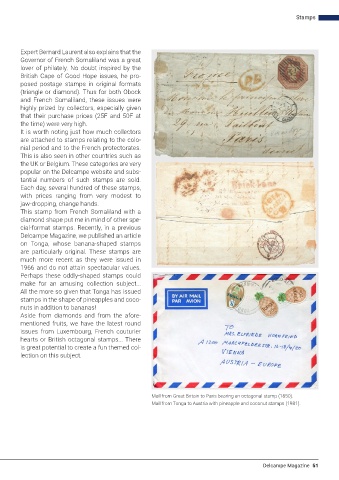 Stamps
Expert Bernard Laurent also explains that the
Governor of French Somaliland was a great
lover of philately. No doubt inspired by the
British Cape of Good Hope issues, he pro-
posed postage stamps in original formats
(triangle or diamond). Thus for both Obock
and French Somaliland, these issues were
highly prized by collectors, especially given
that their purchase prices (25F and 50F at
the time) were very high.
It is worth noting just how much collectors
are attached to stamps relating to the colo-
nial period and to the French protectorates.
This is also seen in other countries such as
the UK or Belgium. These categories are very
popular on the Delcampe website and subs-
tantial numbers of such stamps are sold.
Each day, several hundred of these stamps,
with prices ranging from very modest to
jaw-dropping, change hands.
This stamp from French Somaliland with a
diamond shape put me in mind of other spe-
cial-format stamps. Recently, in a previous
Delcampe Magazine, we published an article
on Tonga, whose banana-shaped stamps
are particularly original. These stamps are
much more recent as they were issued in
1966 and do not attain spectacular values.
Perhaps these oddly-shaped stamps could
make for an amusing collection subject...
All the more so given that Tonga has issued
stamps in the shape of pineapples and coco-
nuts in addition to bananas!
Aside from diamonds and from the afore-
mentioned fruits, we have the latest round
issues from Luxembourg, French couturier
hearts or British octagonal stamps... There
is great potential to create a fun themed col-
lection on this subject.
Paris
BY AIR MAIL
PAR AVION
TO:
MRS. ELFRIEDE
A 1200
VIENNA
AUSTRIA - EUROPE
Mail from Great Britain to Paris bearing an octogonal stamp (1850).
Mail from Tonga to Austria with pineapple and coconut stamps (1981).
Delcampe Magazine 51